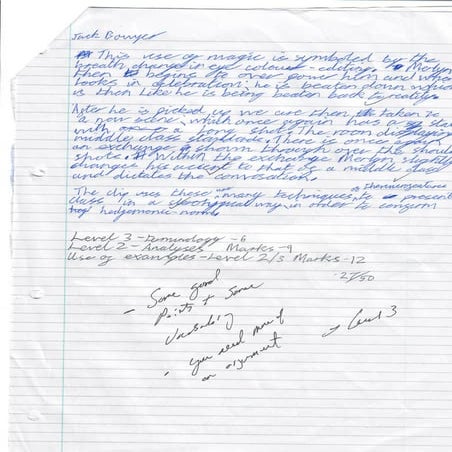 Jack Bowyer
This use of magic is symboled by the
breath, change in eye colour - editing. Merlyn
then begins to over power him and when
looks in celebration; he is beaten down which
is then like he is being beaten back to reality.
After he is picked up we are then taken to
a new scene, which once again has a
with a long shot. The room displaying
middle class standards. There is once again
an exchange shown through over the shoulder
shots. Within the exchange Merlyn slightly
changes his accent to that of a middle class
and dictates the conversation.
The clip uses these many techniques to present
class in a stereotypical way in order to conform
to hedgemonic norms
Level 3 - terminology - 6
Level 2 - Analyses Marks - 9
Use of examples - Level 2/3 Marks - 12
27/50
- Some good
points & some
vocabulary
- you need more of
an argument
→ Level 3